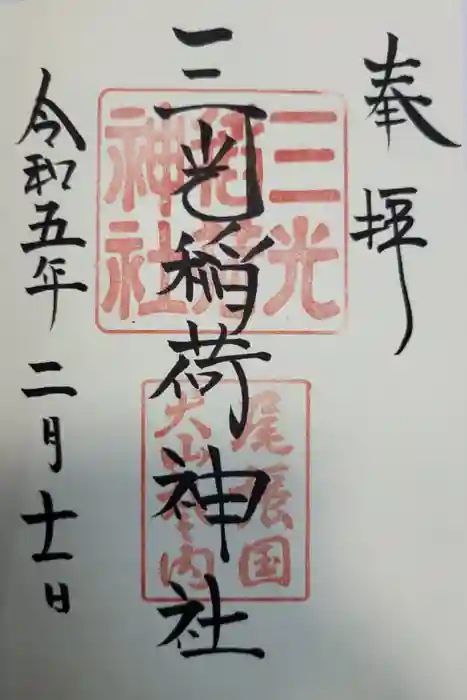 奉拝
三光稲荷神社
令和五年二月十一日
三光
稲荷
神社
尾張国
犬山城内